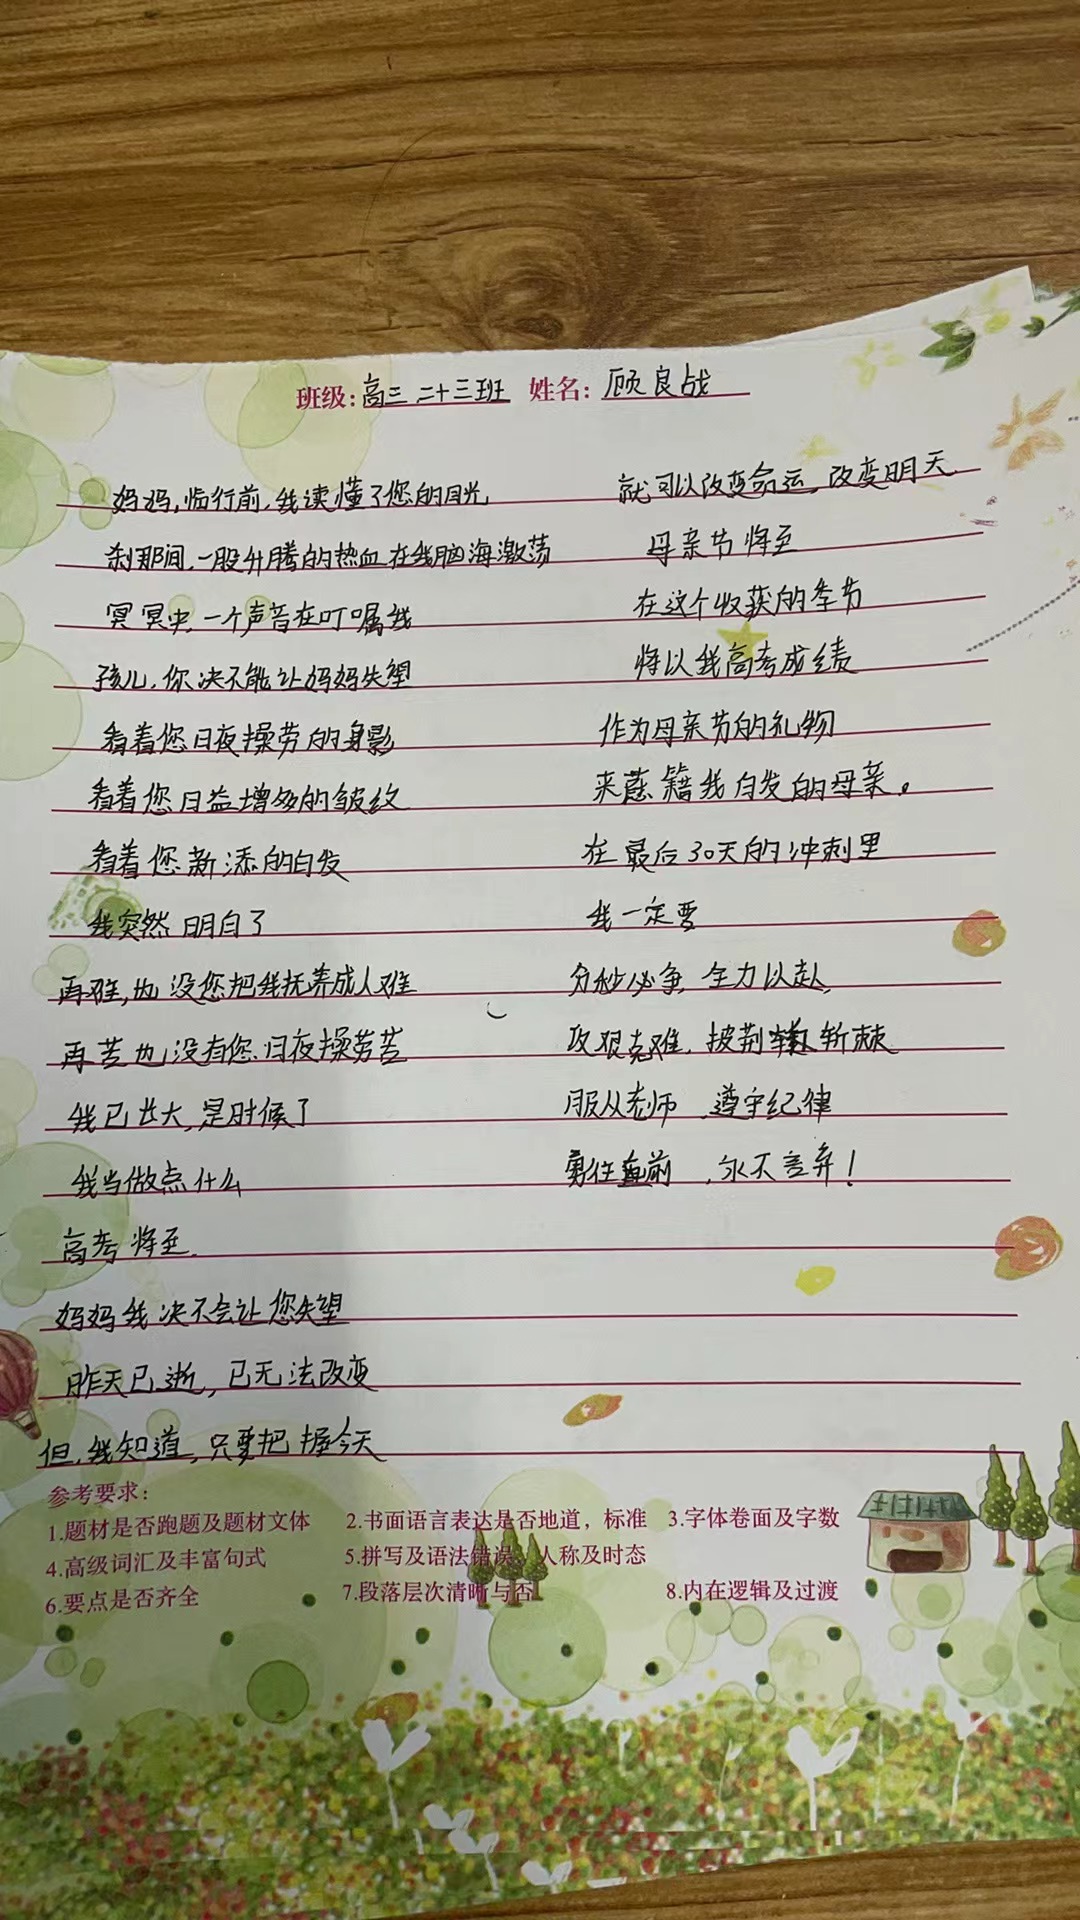 班级:高三二十三班 姓名:顾良战
妈妈,临行前,我读懂了您的目光
刹那间,一股升腾的热血在我脑海激荡
冥冥中,一个声音在叮嘱我
孩儿,你决不能让妈妈失望
看着您日夜操劳的身影
看着您日益增多的皱纹
看着您新添的白发
我突然明白了
再难,也没您把我抚养成人难
再苦也没有您日夜操劳苦
我已长大,是时候了
我当做点什么
高考将至.
妈妈我决不会让您失望
昨天已逝,已无法改变
但,我知道,只要把握今天
就可以改变命运,改变明天
母亲节将至
在这个收获的季节
将以我高考成绩
作为母亲节的礼物
来慰籍我白发的母亲。
在最后30天的冲刺里
我一定要
分秒必争,全力以赴,
攻艰克难,披荆斩棘
服从老师,遵守纪律
勇往直前,永不言弃!
参考要求:
1.题材是否跑题及题材文体 2.书面语言表达是否地道,标准 3.字体卷面及字数
4.高级词汇及丰富句式 5.拼写及语法错误、人称及时态
6.要点是否齐全 7.段落层次清晰与否 8.内在逻辑及过渡